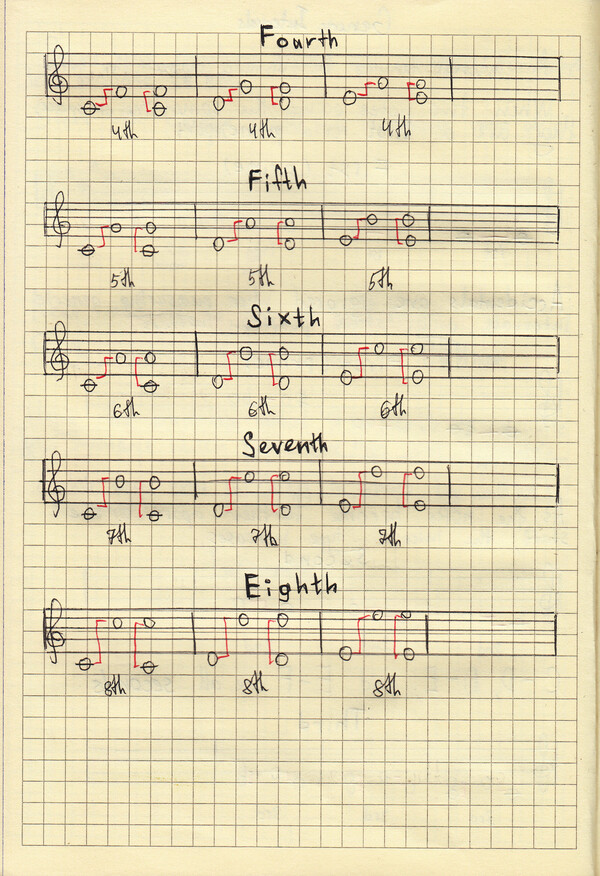 Fourth
4th 4th 4th
Fifth
5th 5th 5th
Sixth
6th 6th 6th
Seventh
7th 7th 7th
Eighth
8th 8th 8th